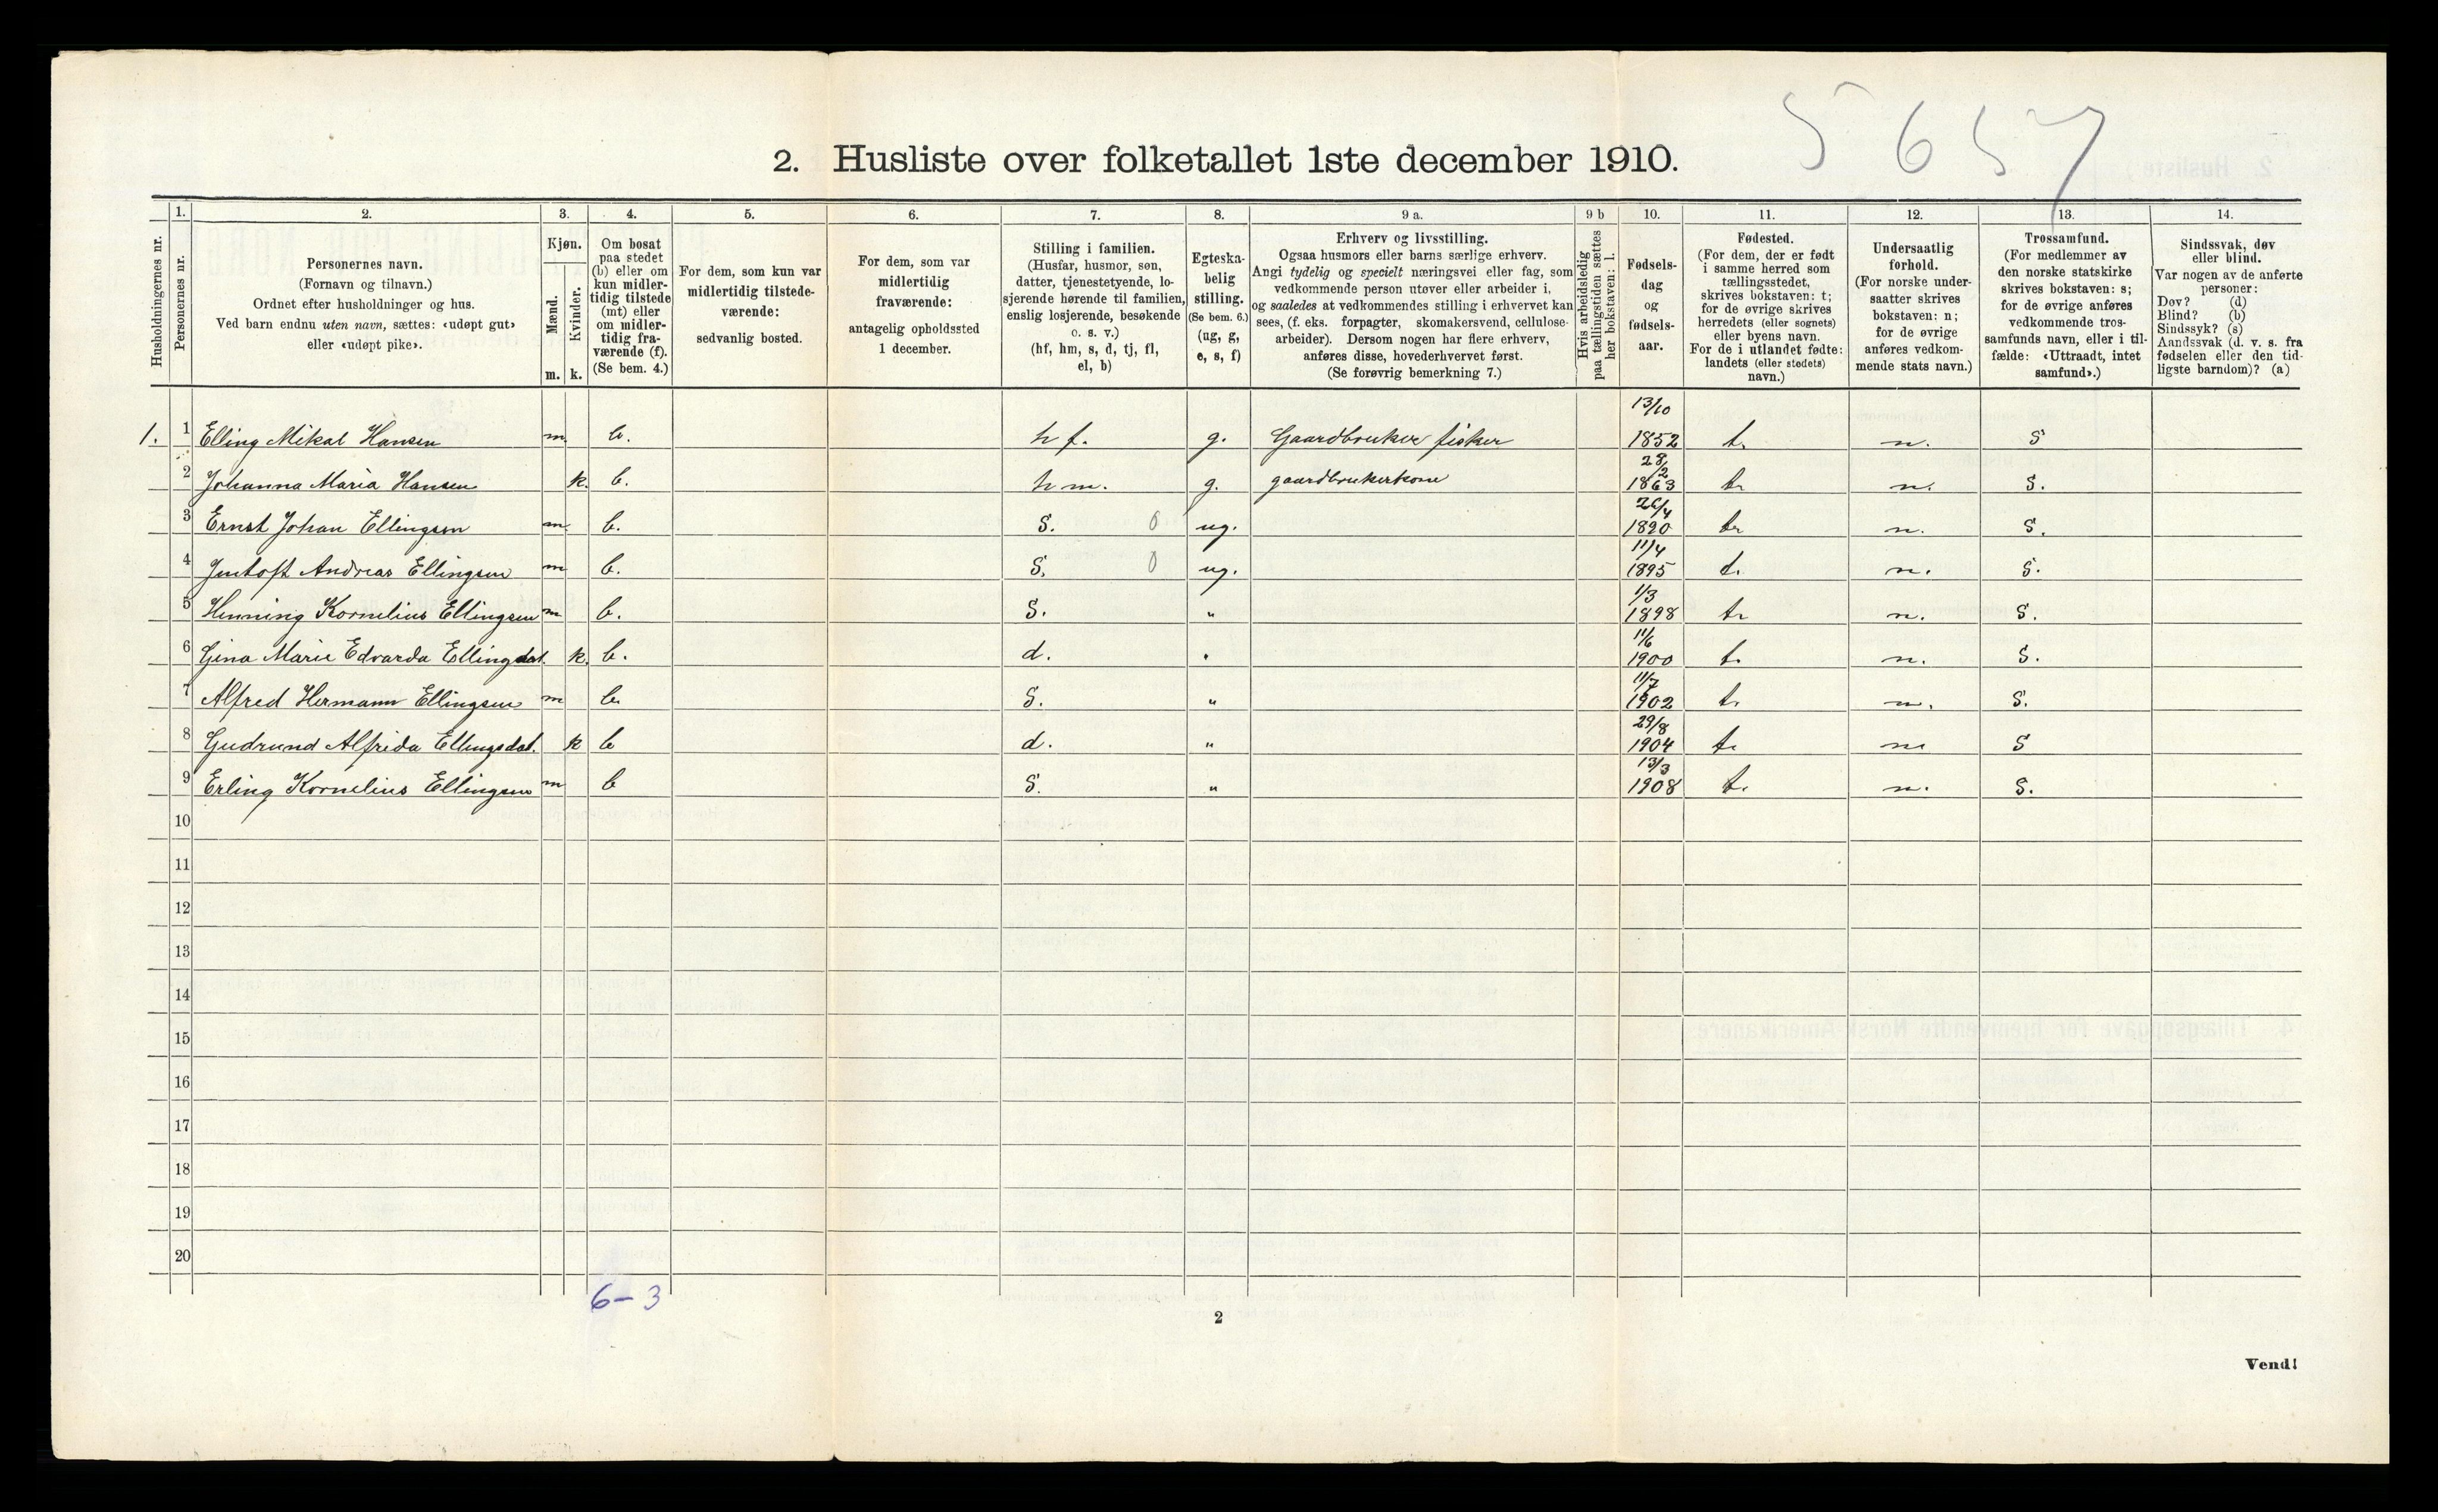 5657
2. Husliste over folketallet 1ste december 1910.
Husholdningernes nr.
1. Personernes nr.
2. Personernes navn.
(Fornavn og tilnavn.)
Ordnet efter husholdninger og hus.
Ved barn endnu uten navn, sættes: «udøpt gut»
eller «udøpt pike».
3. Kjøn.
Mænd. m.
Kvinder. k.
4. Om bosat
paa stedet
(b) eller om
kun midler-
tidig tilstede
(mt) eller
om midler-
tidig fra-
værende (f).
(Se bem. 4.)
5. For dem, som kun var
midlertidig tilstede-
værende:
sedvanlig bosted.
6. For dem, som var
midlertidig
fraværende:
antagelig opholdssted
1 december.
7. Stilling i familien.
(Husfar, husmor, søn,
datter, tjenestetyende, lo-
sjerende hørende til familien,
enslig losjerende, besøkende
o. s. v.)
(hf, hm, s, d, tj, fl,
el, b)
8. Egteska-
belig
stilling.
(Se bem. 6.)
(ug, g,
e, s, f)
9 a. Erhverv og livsstilling.
Ogsaa husmors eller barns særlige erhverv.
Angi tydelig og specielt næringsvei eller fag, som
vedkommende person utøver eller arbeider i,
og saaledes at vedkommendes stilling i erhvervet kan
sees, (f. eks. forpagter, skomakersvend, cellulose-
arbeider). Dersom nogen har flere erhverv,
anføres disse, hovederhvervet først.
(Se forøvrig bemerkning 7.)
9 b Hvis arbeidsledig
paa tællingstiden sættes
her bokstaven: l.
10. Fødsels-
dag
og
fødsels-
aar.
11. Fødested.
(For dem, der er født
i samme herred som
tællingsstedet,
skrives bokstaven: t;
for de øvrige skrives
herredets (eller sognets)
eller byens navn.
For de i utlandet fødte:
landets (eller stedets)
navn.)
12. Undersaatlig
forhold.
(For norske under-
saatter skrives
bokstaven: n;
for de øvrige
anføres vedkom-
mende stats navn.)
13. Trossamfund.
(For medlemmer av
den norske statskirke
skrives bokstaven: s;
for de øvrige anføres
vedkommende tros-
samfunds navn, eller i til-
fælde: «Uttraadt, intet
samfund».)
14. Sindssvak, døv
eller blind.
Var nogen av de anførte
personer:
Døv? (d)
Blind? (b)
Sindssyk? (s)
Aandssvak (d. v. s. fra
fødselen eller den tid-
ligste barndom)? (a)
1. 1 Elling Mikal Hansen m. b. hf. g. Gaardbruker fisker 13/10 1852 t. n. S
2 Johanna Maria Hansen k. b. hm. g. gaardbrukerkone 28/2 1863 t. n. S.
3 Ernst Johan Ellingsen m. b. S. 0 ug. 26/4 1890 t. n. S.
4 Andreas Ellingsen m b. S. 0 ug. 11/4 1895 t. n. S.
5 Henning Kornelius Ellingsen m b. S. " 1/3 1898 t. n. S.
6 Gina Marie Edvarda Ellingsdat. k. b. d. " 11/6 1900 t. n. S.
7 Alfred Hermann Ellingsen m b. S. " 11/7 1902 t. n. S.
8 Gudrund Alfrida Ellingsdat. k b d. " 29/8 1904 t. n S
9 Erling Kornelius Ellingsen m b S. " 13/3 1908 t. n. S.
10
11
12
13
14
15
16
17
18
19
20
6-3
2
Vend!